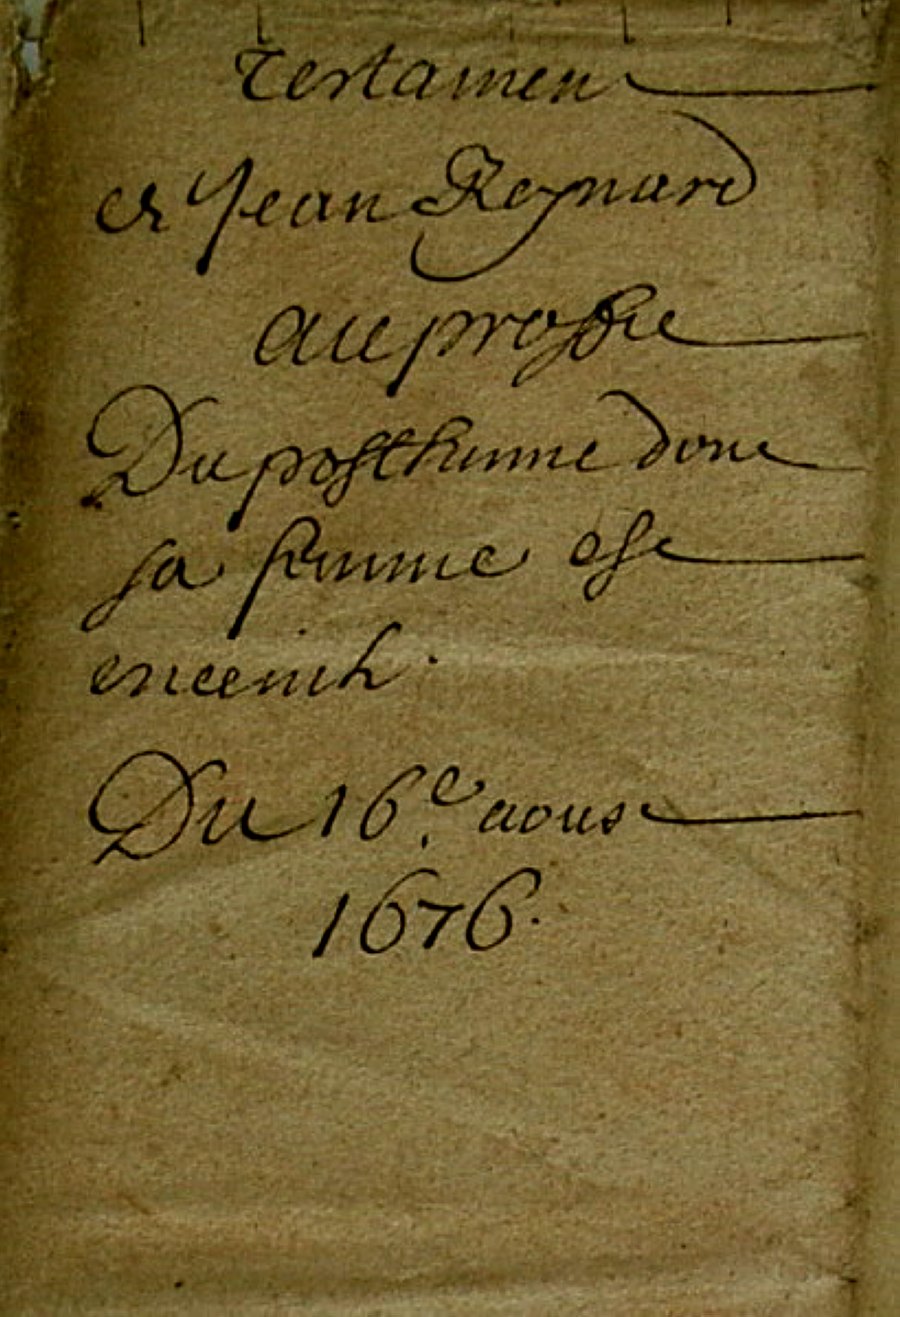 Testament
de Jean Reynard
au profit
Du posthume dont
sa femme est
enceinte.
Du 16e aoust
1676.